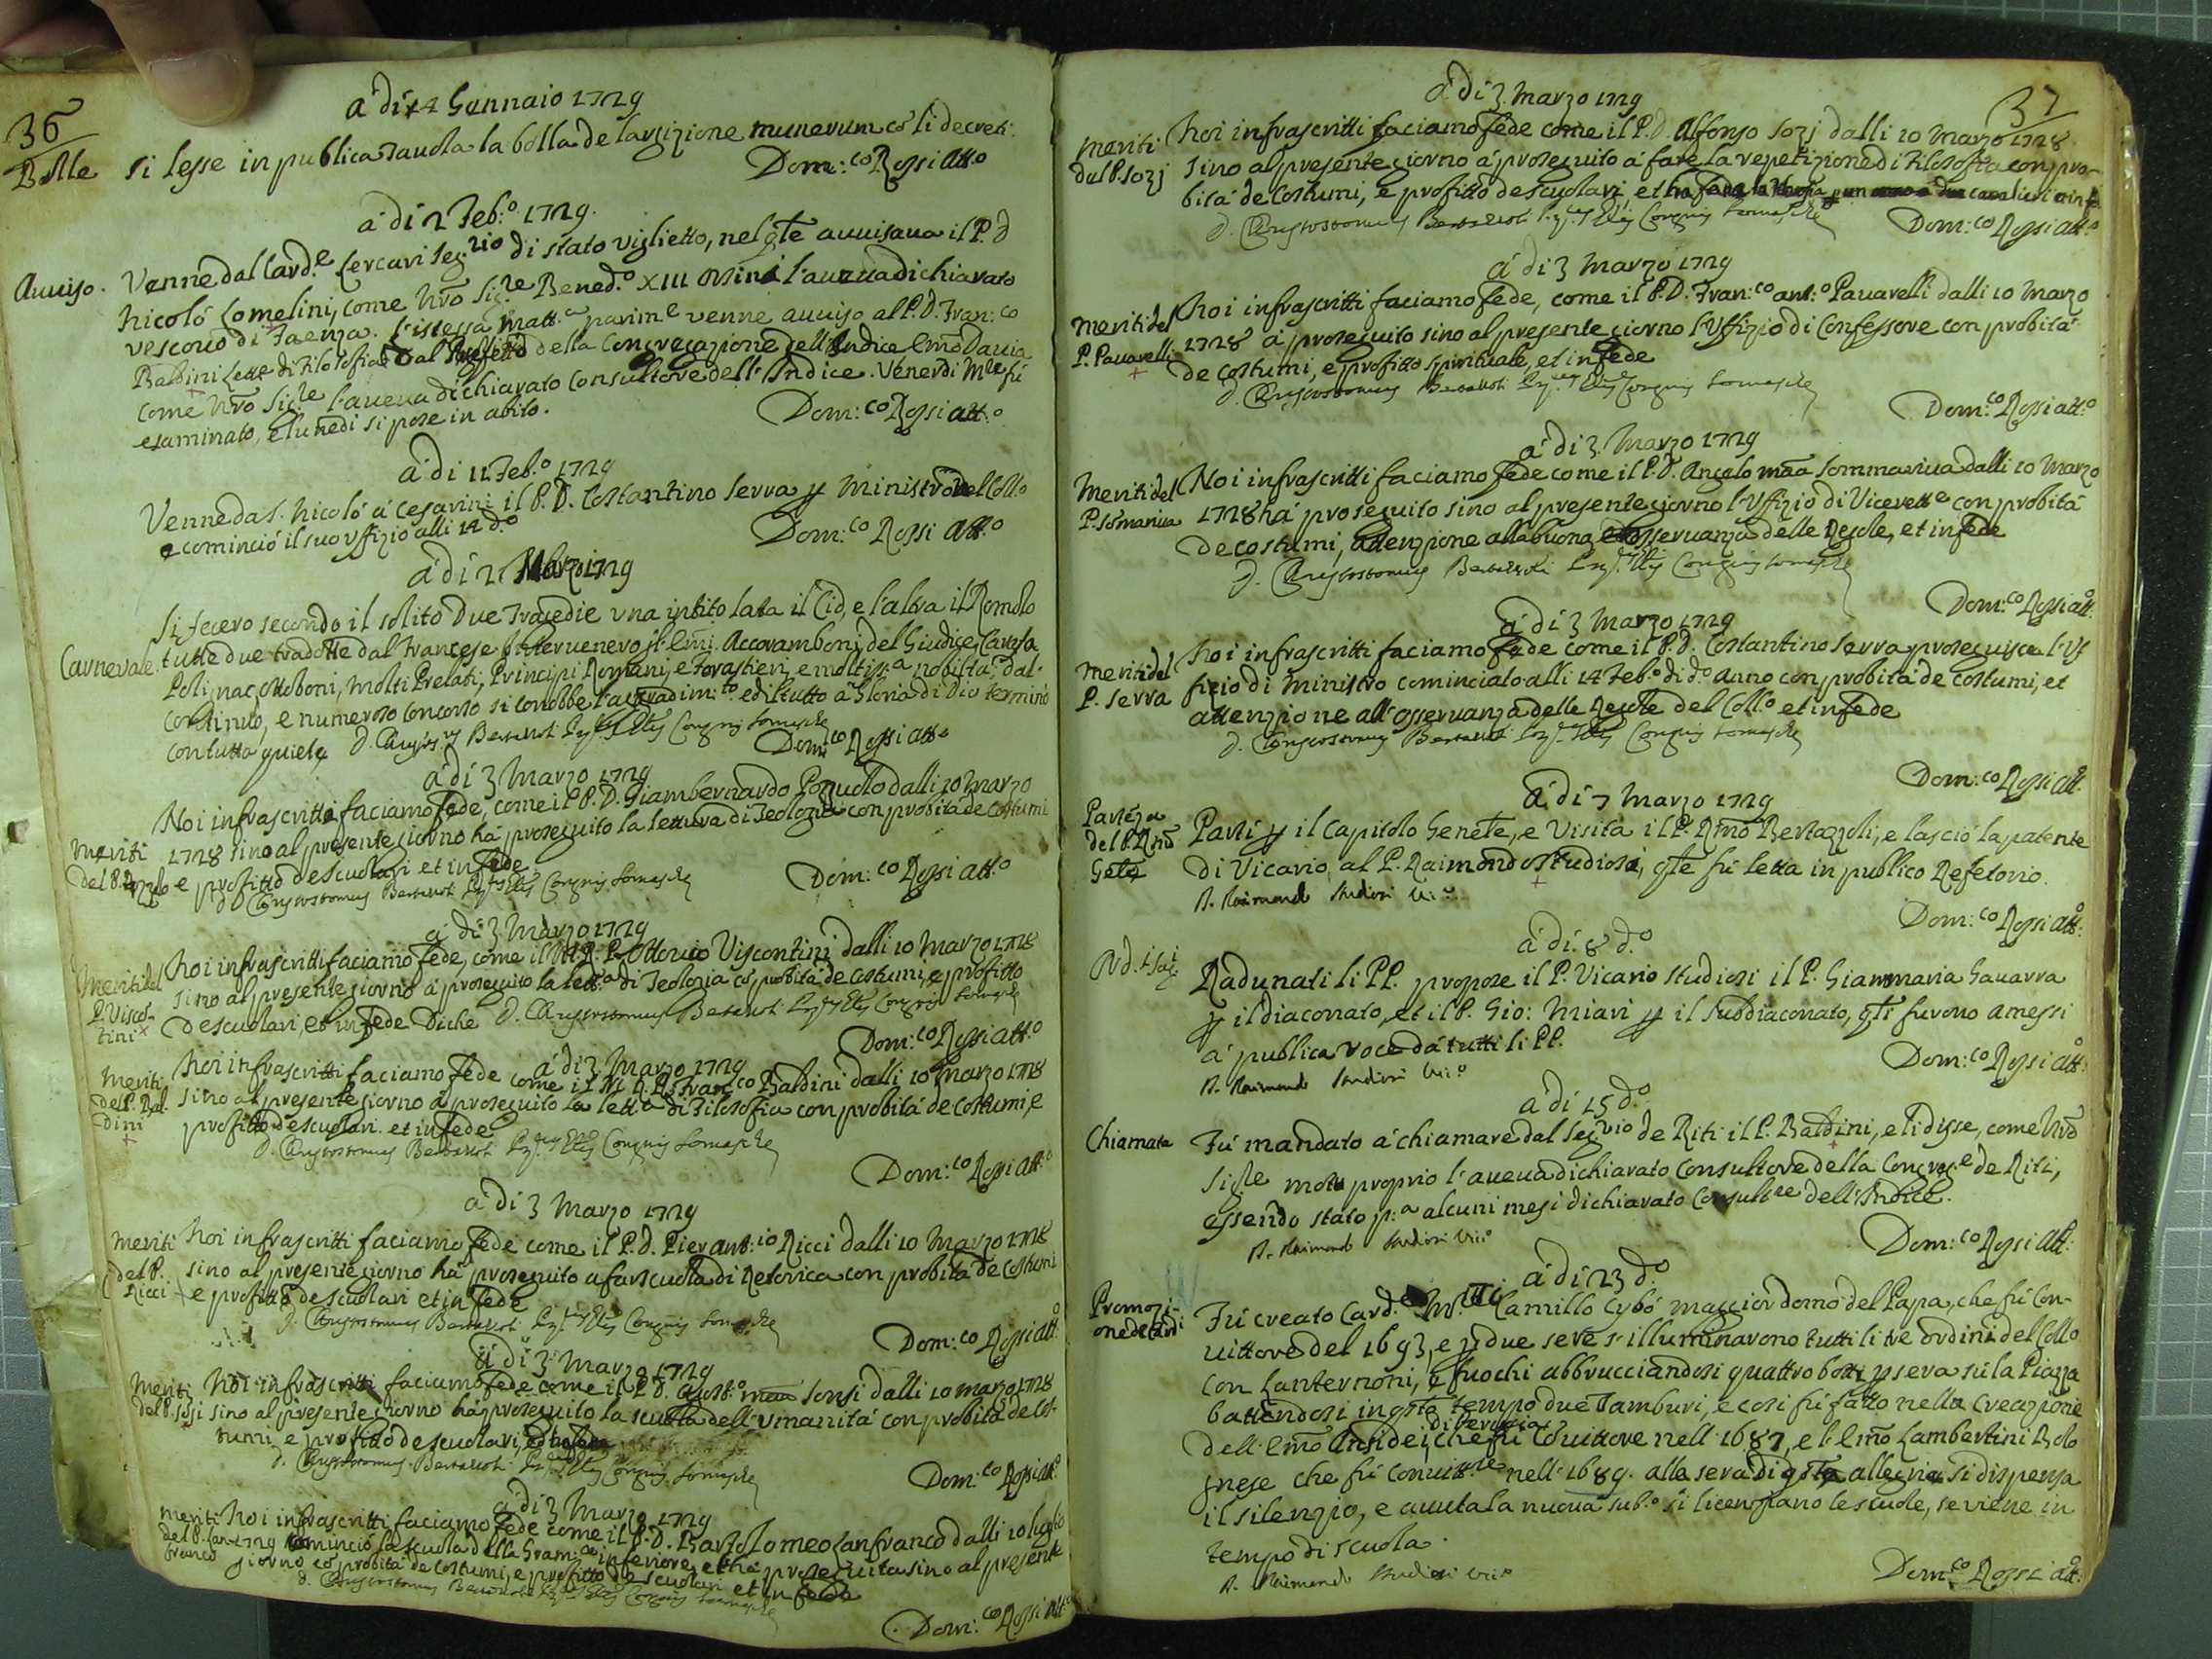 36
à di 22 Gennaio 1729
Bolle
si lesse in publica Tavola la bolla de largizione munerum có li decreti.
Dom:co Rossi Att.o
à di 2 Feb:o 1729.
Avviso.
Venne dal Card.e Lercari Seg.rio di stato viglietto, nel qte avvisava il P. D
Nicoló Lomelini, come Nró Sig.re Bened.o XIII Orsini l'aveva dichiarato
vescovo di Faenza. l'istessa matt.a parim.e venne avviso al P. D. Fran:co
Baldini Lett.e di Filosofia dal Prefetto della Congregazione dell'Indice
come Nró Sig.re l'aveva dichiarato Consultore dell'Indice. Venerdi fú
esaminato, e lunedi si pose in abito.
Dom:co Rossi att.o
à di 11 Feb.o 1729
Venne da S. Nicoló á Cesarini il P. D. Costantino Serra p Ministro del Coll.o
e cominció il suo Uffizio alli 14 d.o
Dom:co Rossi Att.o
à di 2 Marzo 1729
Carnevale.
Si fecero secondo il solito Due Tragedie una intitolata il Cid, e l'altra il Romolo
tutte due tradotte dal Francese Intervenero gl'Emi. Accoramboni, del Giudice, Caraffa
Polignac, Ottoboni, molti Prelati, Principi Romani, e Forastieri, e moltiss.a nobiltà, dal
continuo, e numeroso concorso si conobbe l'aggradim.to ed il tutto á Gloria di Dio terminó
con tutta quiete
Dom:co Rossi att.o
à di 3 Marzo 1729
Meriti
Noi infrascritti faciamo fede, come il P. D. Giambernardo dalli 10 Marzo
1728 sino al presente giorno há proseguito la lettura di Teologia con probitá de Costumi
e profitto de scuolari et in fede
Dom:co Rossi att.o
à di 3 Marzo 1729
Meriti del
P. Viscon-
tini
Noi infrascritti faciamo fede, come il Ottavio Viscontini dalli 10 Marzo 1728
sino al presente giorno á proseguito la lett.a di Teologia có probitá de costumi, e profitto
de scuolari, et in fede Diche
Dom:co Rossi att.o
à di 3 Marzo 1729
Meriti
del P. Bal-
dini
Noi infrascritti faciamo fede come il Fran.co Baldini dalli 10 Marzo 1728
sino al presente giorno á proseguito la lett.a di Filosofia con probitá de Costumi, e
profitto de scuolari. et in fede
Dom:co Rossi att.o
à di 3 Marzo 1729
Meriti
del P.
Ricci
Noi infrascritti faciamo fede come il P. D. Pier ant:io Ricci dalli 10 Marzo 1728
sino al presente giorno há proseguito a far scuola di Retorica con probitá de Costumi
e profitto de scuolari et in fede
Dom:co Rossi att.o
à di 3 Marzo 1729
Meriti
Noi infrascritti faciamo fede come il P. D. dalli 10 marzo 1728
sino al presente giorno há proseguito la scuola dell'Umanitá con probitá de Cos-
tumi, e profitto de scuolari,
Dom:co Rossi att.o
à di 3 Marzo 1729
Meriti
del P. Lan-
franco
Noi infrascritti faciamo fede come il P. D. Bartolomeo Lanfranco dalli 10 luglio
cominció la scuola della Gram.ca inferiore, et há proseguito sino al presente
giorno có probitá de Costumi, e profitto de scuolari et in fede
Dom:co Rossi att.o
37
à di 3. Marzo 1729
Meriti
del P. Sozj
Noi infrascritti faciamo fede come il P. D. Alfonso Sozj dalli 10 Marzo 1728
sino al presente giorno á proseguito á fare la repetizione di Filosofia con pro-
bitá de Costumi, e profitto de scuolari
Dom:co Rossi att.o
à di 3 Marzo 1729
Meriti del
P. Pavarelli
Noi infrascritti faciamo fede, come il P. D. Fran:co ant:o Pavarelli dalli 10 Marzo
1728 á proseguito sino al presente giorno l'Uffizio di Confessore con probitá
de costumi, e profitto spirituale, et in fede
Dom:co Rossi att.o
à di 3. Marzo 1729
Meriti del
P. Somariva
Noi infrascritti faciamo fede come il P. D. Angelo Maã Sommariva dalli 10 Marzo
1728 há proseguito sino al presente giorno l'Uffizio di Viceretto.e con probitá
de costumi, attenzione alla buona osservanza delle Regole, et in fede
Dom:co Rossi att.
à di 3 Marzo 1729
Meriti del
P. Serra
Noi infrascritti faciamo fede come il P. D. Costantino Serra proseguisce l'Uf
fizio di Ministro cominciato alli 14 Feb.o di d.o anno con probitá de costumi, et
attenzione all'osservanza delle Regole del Coll.o et in fede
Dom:co Rossi att.
à di 7 Marzo 1729
Parteza
del P. Rmo
Gele
Partí p il Capitolo Genele, e Visita il P. Rmo Bertazzoli, e lasció la patente
di Vicario al P. Raimondo Studiosi, qte fú letta in publico Refetorio.
R. Raimondo Studiosi Vic.o
Dom:co Rossi att:
à di. 8 d.o
Radunati li PP. propose il P. Vicario Studiosi il P. Giammaria Gavarra
p il diaconato, et il P. Gio: Miari p il Subdiaconato, qti furono amessi
á publica voce dá tutti li PP.
R. Raimondo Studiosi Vic.o
Dom:co Rossi att:
à di 15 d.o
Chiamata
Fú mandato á chiamare dal Seg.rio de Riti il P. Baldini, e li disse, come Nró
Sig.re motu proprio l'aveva dichiarato Consultore della Congreg.e de Riti,
essendo stato p:a alcuni mesi dichiarato Consult.re dell'Indice.
R. Raimondo Studiosi Vic.o
Dom:co Rossi att:
à di 23 d.o
Promozi-
one de Cardi
Fú creato Card.e Camillo Cybó maggiordomo del Papa, che fú Con-
vittore del 1693, e p due sere s'illuminarono tutti li tre ordini del Coll.o
con Lanternoni, e fuochi abbrucciandosi quattro botti p sera sú la Piazza
battendosi in qsto tempo due Tamburi, e cosi fú fatto nella Creazione
di Perugia
dell'Emo Ansidei, che fú Cõvittore nell'1687, e l'Emo Lambertini Bolo
gnese che fú convitt.re nell'1689. alla sera di qsta allegria si dispensa
il silenzio, e avuta la nuova sub.o si licenziano le scuole, se viene in
tempo di scuola.
R. Raimondo Studiosi Vic.o
Dom:co Rossi att: